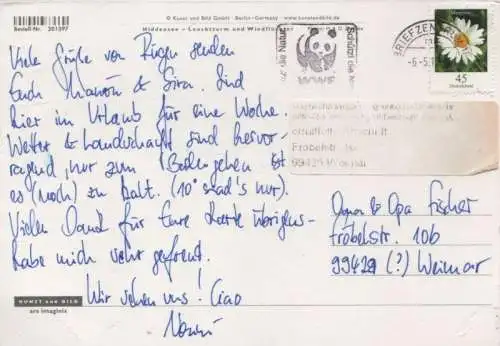 Bestell-Nr. 201397
© Kunst und Bild GmbH · Berlin-Germany · www.kunstundbild.de
Hiddensee – Leuchtturm und
Viele Grüße von Rügen senden
Euch Manon & Sira. Sind
hier im Urlaub für eine Woche.
Wetter & Landschaft sind hervor-
ragend, nur zum Baden gehen ist
es (noch) zu kalt. (10° sind's nur).
Vielen Dank für Eure Karte übrigens-
habe mich sehr gefreut.
Wir sehen uns! Ciao
KUNST und BILD
ars imaginis
Schützt die Natur
WWF
BRIEFZEN
-6.-5.1
45
Deutschland
99423 Weimar
Oma & Opa Fischer
Fröbelstr. 10b
99429 (?) Weimar